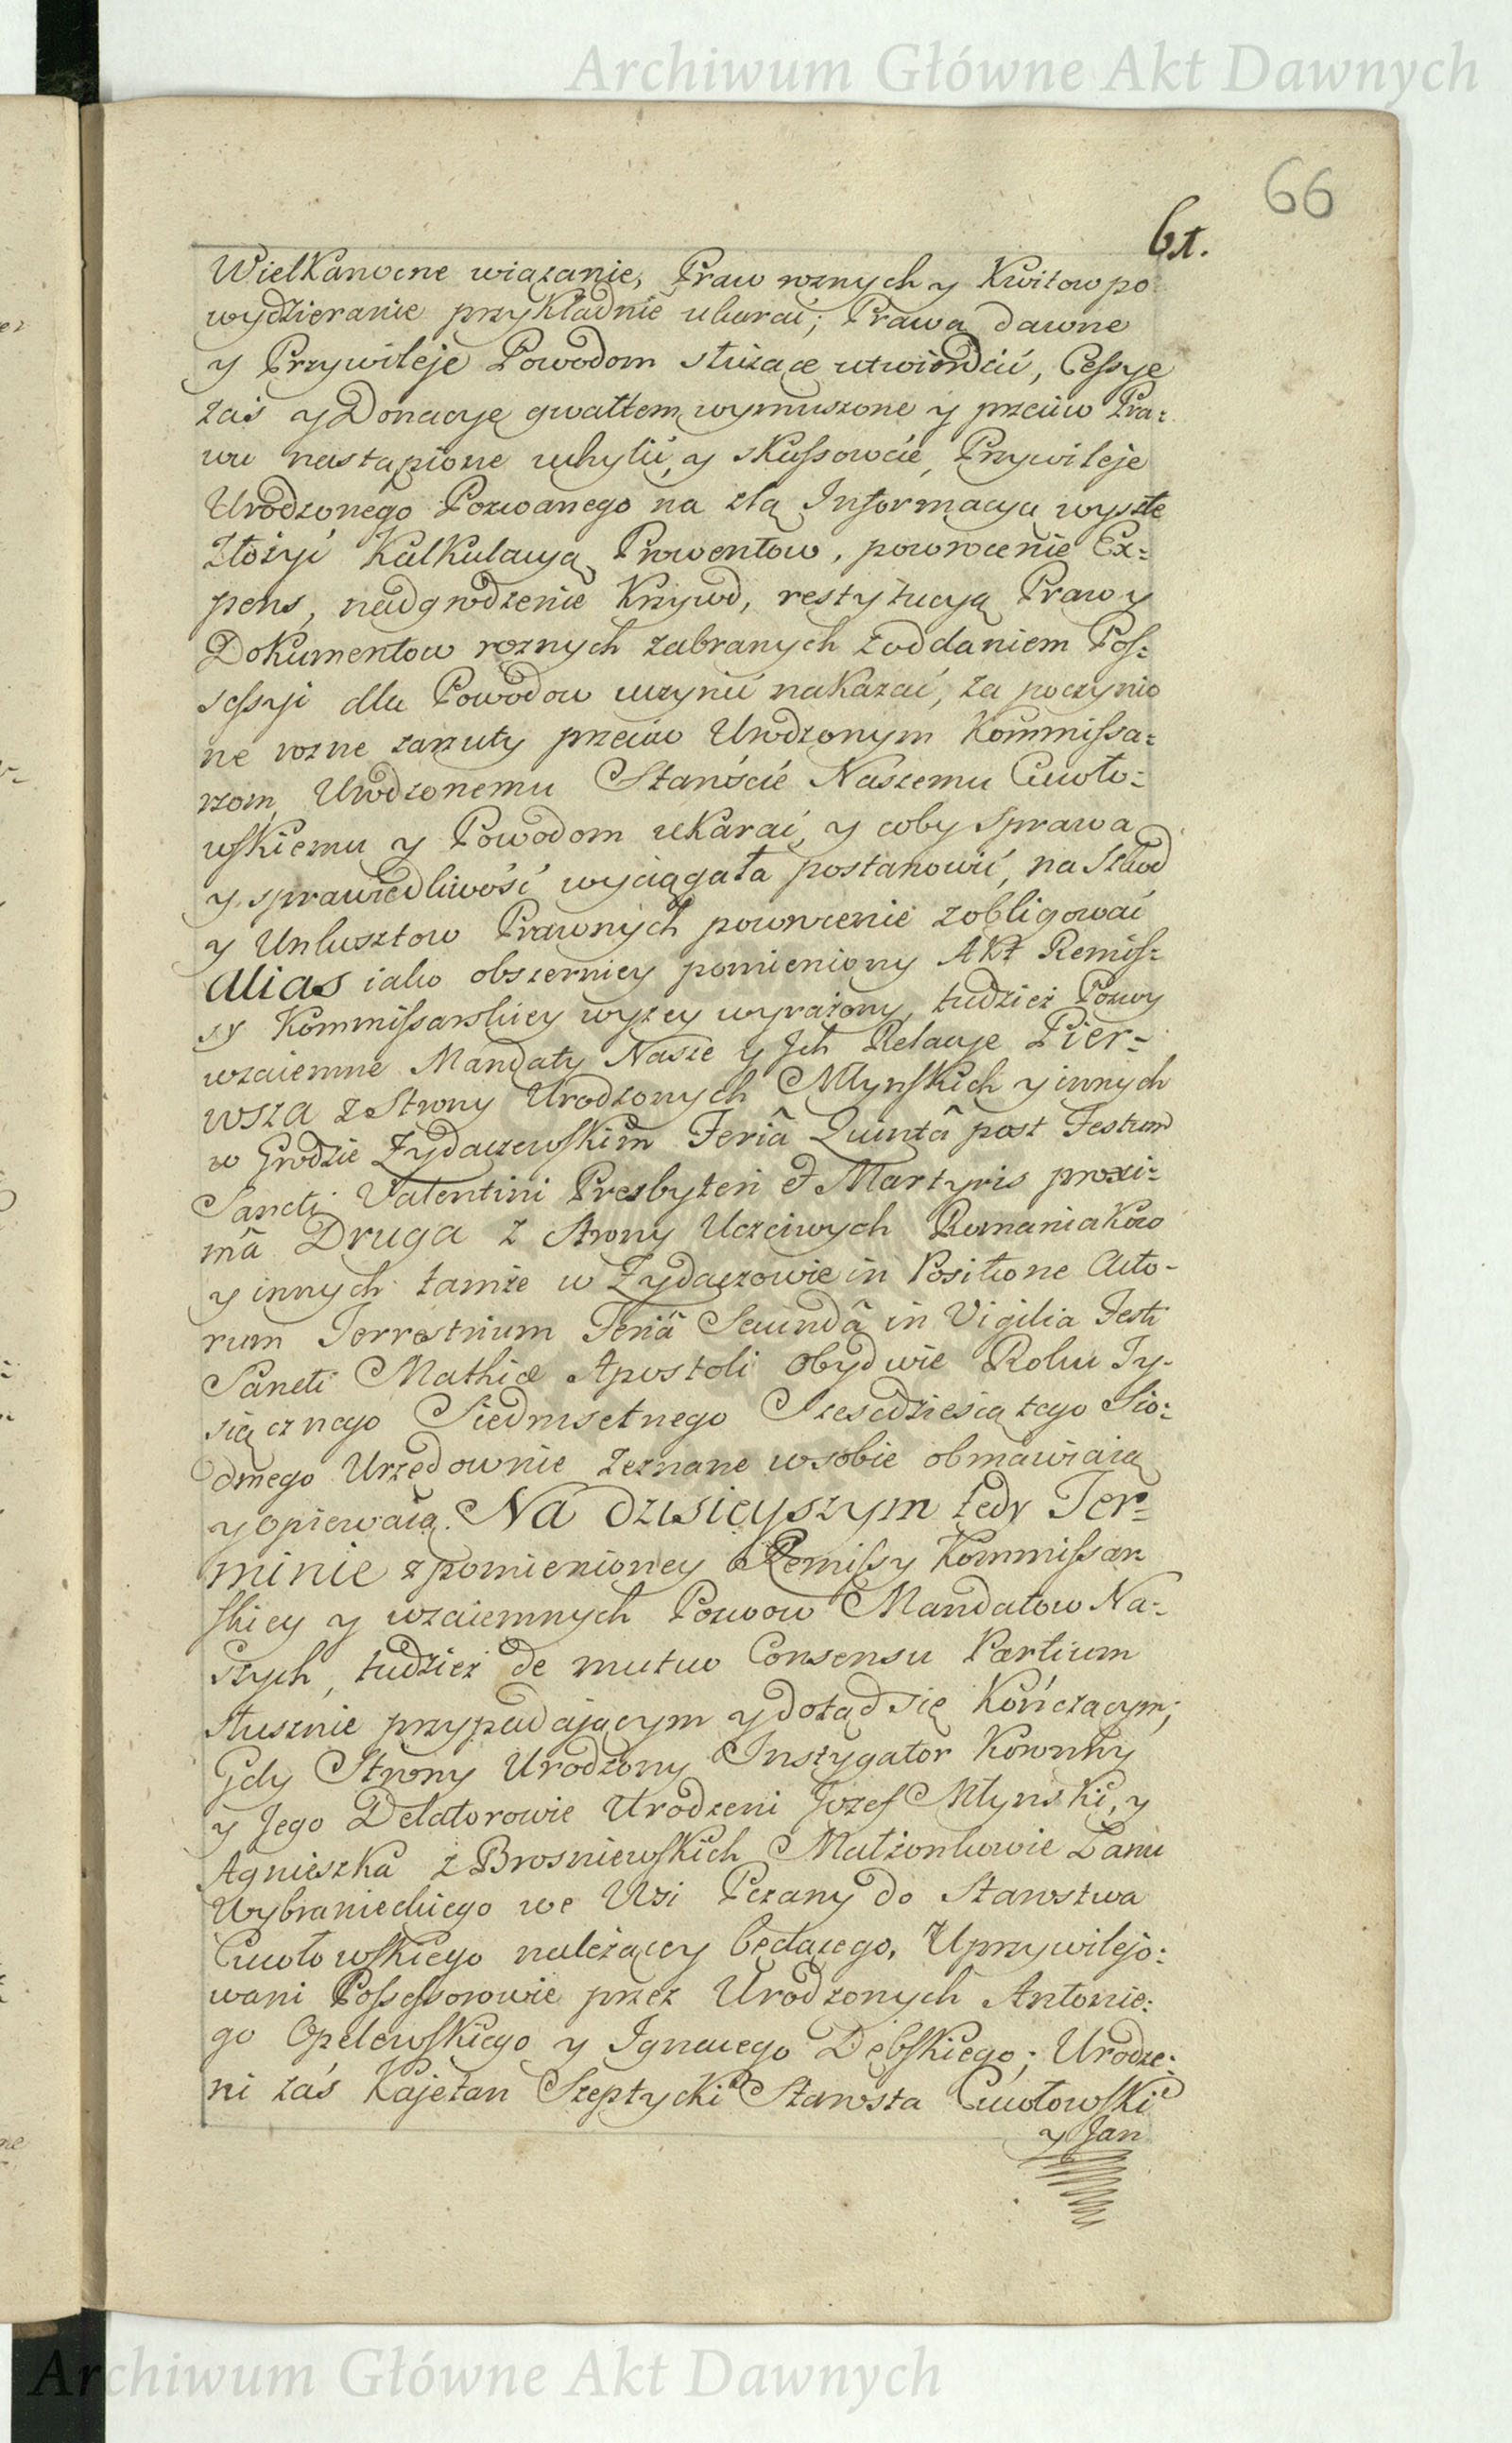 Archiwum Główne Akt Dawnych
66
61.
Wielkanocne wiązanie, Praw roznych y Kwitow po
wydzieranie przykładnie ukarać; Prawa dawne
y Przywileje Powodom służące utwierdzić, Cessye
zaś y Donacye gwałtem wymuszone y przeciw Pra:
wu nastąpione uchylić, y skassować, Przywileje
Urodzonego Pozwanego na złą Informacyą wyszłe
złożyć Kalkulacyą Prowentow, powrocenie Ex:
pens, nadgrodzenie Krzywd, restytucyą Praw y
Dokumentow roznych zabranych z oddaniem Pos:
sessyi dla Powodow uczynić nakazać, za poczynio
ne rozne zarzuty przeciw Urodzonym Kommissa:
rzom, Urodzonemu Staroście Naszemu Cucuło:
wskiemu y Powodom ukarać, y coby sprawa
y sprawiedliwość wyciągała postanowić, na Szkod
y Unkosztow Prawnych powrocenie zobligować
Alias iako obszerniey pomieniony Akt Remis:
sy Kommissarskiey wyzey wyrażony, tudzież Pozwy
wzaiemne Mandaty Nasze y Jch Relacye Pier-
wsza z Strony Urodzonych Młynskich y innych
w Grodzie Zydaczewskim Feriâ Quintâ post Festum
Sancti Valentini Presbyteri et Martyris proxi:
mâ Druga z Strony Uczciwych Romaniakow
y innych tamże w Zydaczowie in Positione Acto-
rum Terrestrium Feriâ Secundâ in Vigilia Festi
Sancti Mathiæ Apostoli obydwie Roku Ty-
siącznego Siedmsetnego Szescdziesiątego Sio:
dmego Urzędownie zeznane w sobie obmawiaią
y opiewaią. Na dzisieyszym tedy Ter-
minie z pomienioney Remissy Kommissar
skiey y wzaiemnych Pozwow Mandatow Na-
szych, tudzież de mutuo Consensu Partium
słusznie przypadającym y dotąd się Kończącym;
Gdy Strony Urodzony Instygator Koronny
y Jego Delatorowie Urodzeni Jozef Młynski, y
Agnieszka z Brosniewskich Małżonkowie Łanu
Wybranieckiego we Wsi Pczany do Starostwa
Cucułowskiego należącey będącego, Uprzywilejo:
wani Possessorowie przez Urodzonych Antonie:
go Opelewskiego y Ignacego Dębskiego; Urodze:
ni zaś Kajetan Szeptycki Starosta Cucułowski
y Jan
Archiwum Główne Akt Dawnych